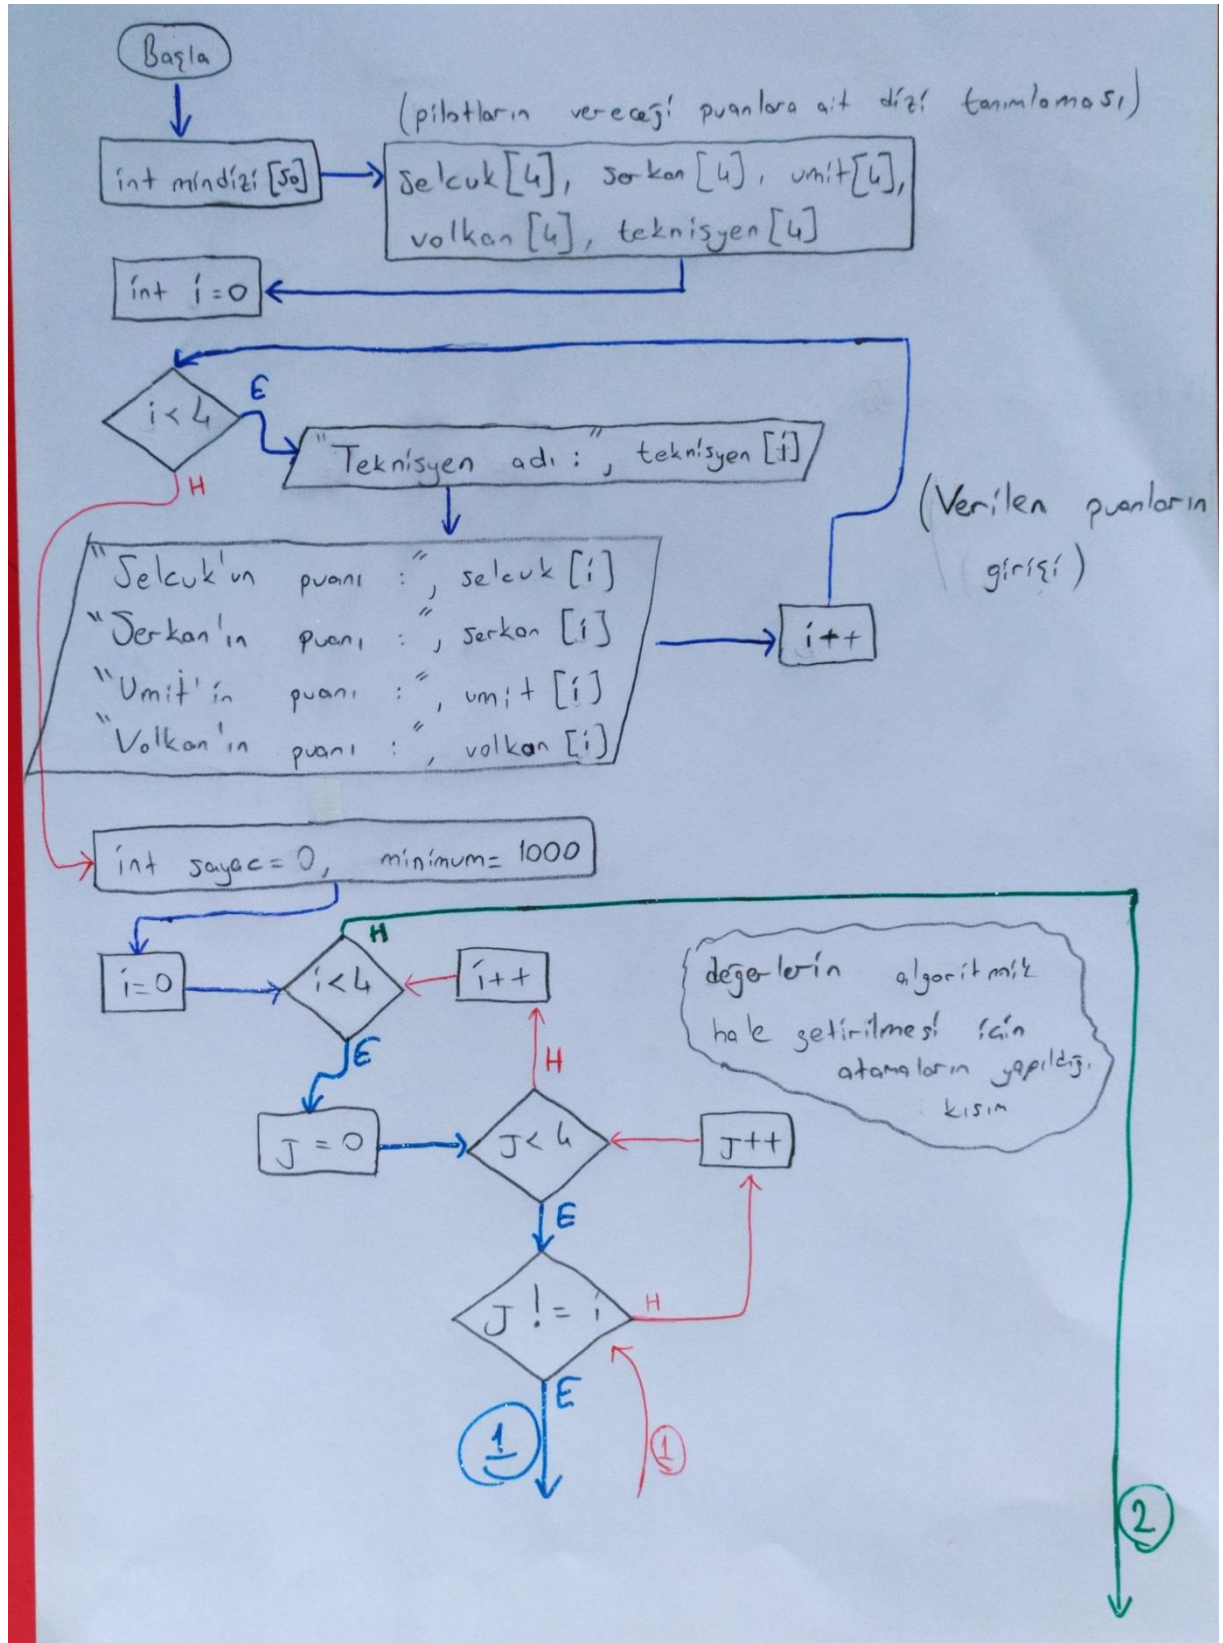 Başla
(pilotların vereceği puanlara ait dizi tanımlaması)
int mindizi [50]
selcuk[4], serkan[4], umit[4],
volkan[4], teknisyen[4]
int i=0
i<4
E
H
"Teknisyen adı :", teknisyen [i]
(Verilen puanların
girişi)
"Selcuk'un puanı :", selcuk [i]
"Serkan'ın puanı :", serkan [i]
"Umit'in puanı :", umit [i]
"Volkan'ın puanı :", volkan [i]
i++
int sayac=0, minimum=1000
H
i=0
i<4
i++
E
H
değerlerin algoritmik
hale getirilmesi için
atamaların yapıldığı
kısım
J=0
J<4
J++
E
J != i
H
E
1
1
2